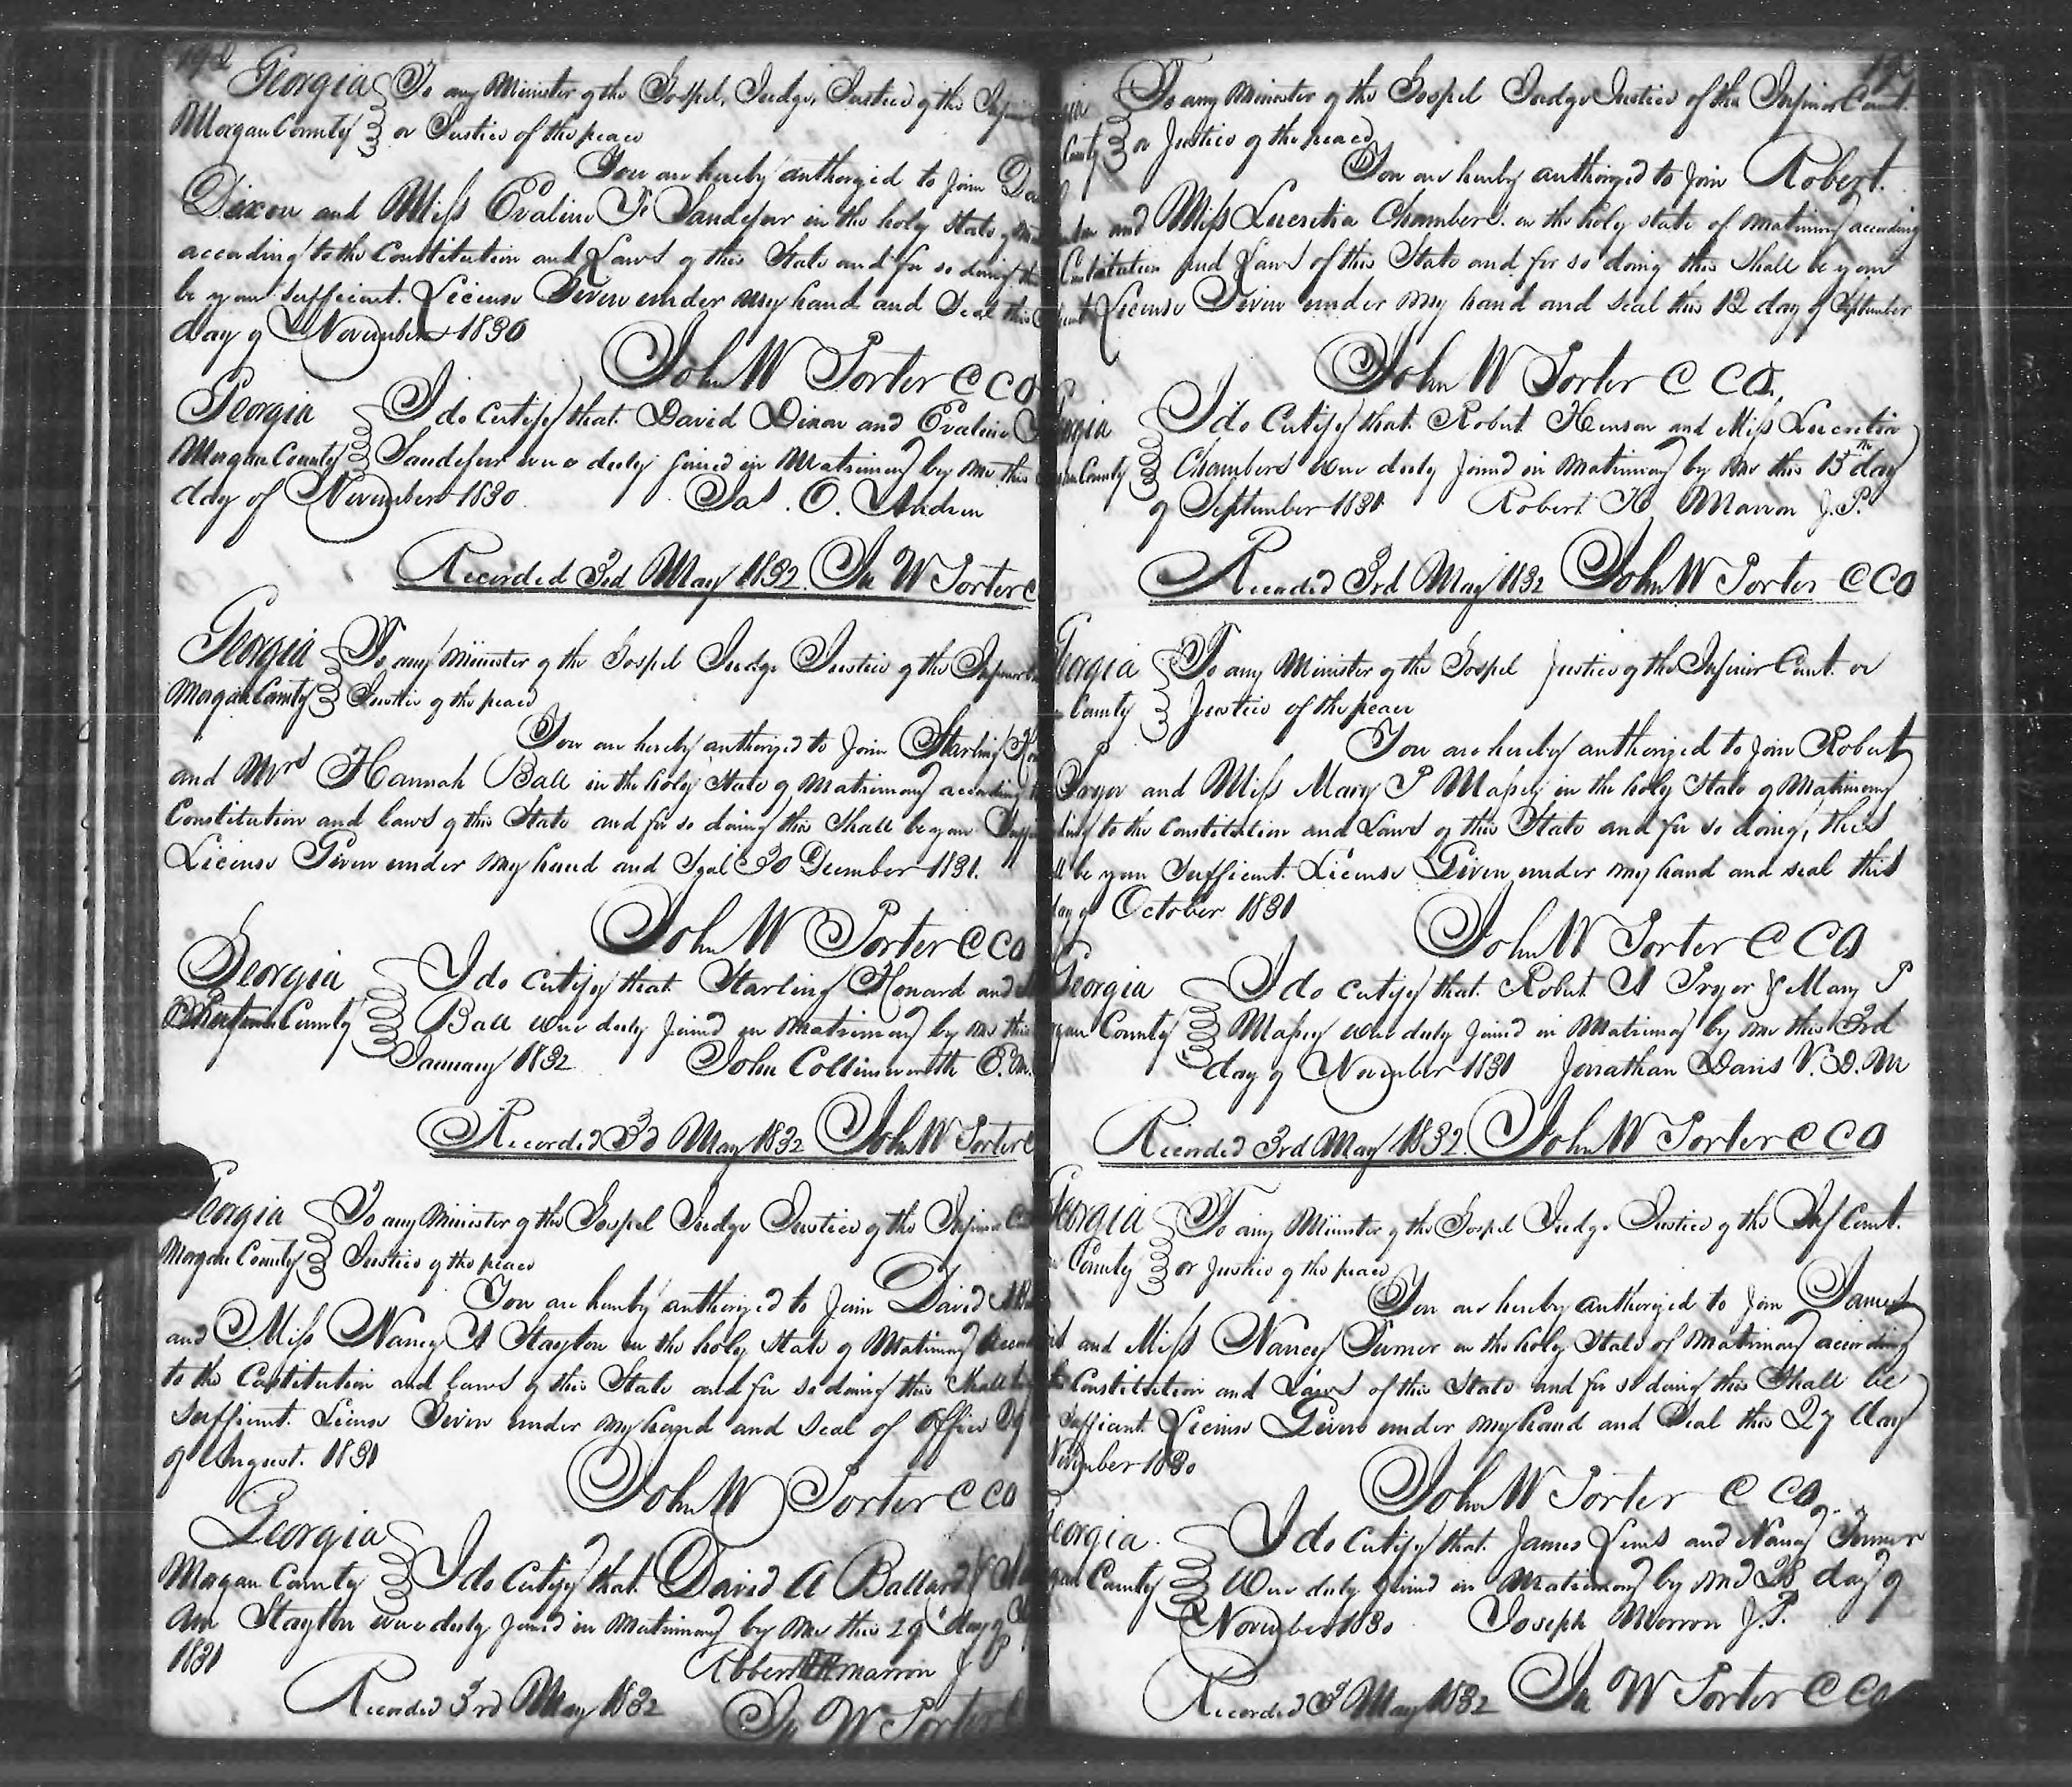 192
Georgia To any Minister of the Gospel, Judge, Justice of the
Morgan County or Justice of the peace
You are hereby authorized to join
Dixon and Miss Evaline F Sandefur in the holy State of
according to the Constitution and Laws of this State and for so doing
be your sufficient License Given under my hand and Seal this
day of November 1830
John W Porter C C O
Georgia I do certify that David Dixon and Evaline
Morgan County Sandefur were duly joined in Matrimony by me this
day of November 1830 Jas. O. Andrew
Recorded 3rd May 1832 Jn W Porter C
Georgia To any Minister of the Gospel Judge Justice of the
Morgan County Justice of the peace
You are hereby authorized to Join Starling
and Mrs Hannah Ball in the holy State of Matrimony according
Constitution and Laws of this State and for so doing this Shall be your
License Given under my hand and Seal 30 December 1831.
John W Porter C C O
Georgia I do certify that Starling Howard and
County Ball were duly Joined in Matrimony by me this
January 1832 John Collinsworth
Recorded 3d May 1832 John W Porter C
Georgia To any Minister of the Gospel Judge Justice of the Inferior
Morgan County Justice of the peace
You are hereby authorized to Join David A
and Miss Nancy A Stayton in the holy State of Matrimony
to the Constitution and Laws of this State and for so doing this Shall
sufficient License Given under my hand and seal of office
of August. 1831
John W Porter C C O
Georgia
Morgan County I do Certify that David A Ballard &
Ann Stayton were duly joined in Matrimony by me this 29 day of
1831
Robert H Marron J P
Recorded 3rd May 1832 Jn W Porter
To any Minister of the Gospel Judge Justice of the Inferior Court.
County or Justice of the peace
You are hereby authorized to Join Robert.
and Miss Lucretia Chambers in the holy state of matrimony according
Constitution and Laws of this State and for so doing this Shall be your
License Given under my hand and seal this 12 day of September
John W Porter C C O.
Georgia I do Certify that Robert Henson and Miss Lucretia
County Chambers were duly Joined in matrimony by me this 15th day
of September 1831 Robert H Marron J.P.
Recorded 3rd May 1832 John W Porter C C O
Georgia To any Minister of the Gospel Justice of the Inferior Court or
County Justice of the peace
You are hereby authorized to Join Robert
Pryor and Miss Mary P Massey in the holy State of Matrimony
to the Constitution and Laws of this State and for so doing, this
be your Sufficient License Given under my hand and seal this
day of October 1831
John W Porter C C O
Georgia I do certify that Robert A Pryor & Mary P
County Massey were duly joined in Matrimony by me this 3rd
day of November 1831 Jonathan Davis V.D.M
Recorded 3rd May 1832. John W Porter C C O
Georgia To any Minister of the Gospel Judge Justice of the Inf Court.
County or Justice of the peace
You are hereby authorized to Join James
and Miss Nancy Turner in the holy State of matrimony according
Constitution and Laws of this State and for so doing this Shall be
Sufficient License Given under my hand and Seal this 27 day
November 1830
John W Porter C C O
Georgia. I do Certify that James and Nancy Turner
County Were duly Joined in Matrimony by me 28 day of
November 1830 Joseph Morrow J.P.
Recorded 3 May 1832 Jn W Porter C C O